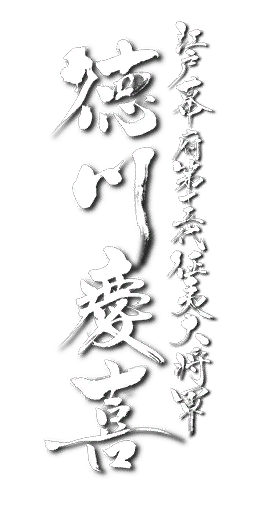 江戸幕府第十五代征夷大将軍
徳川慶喜